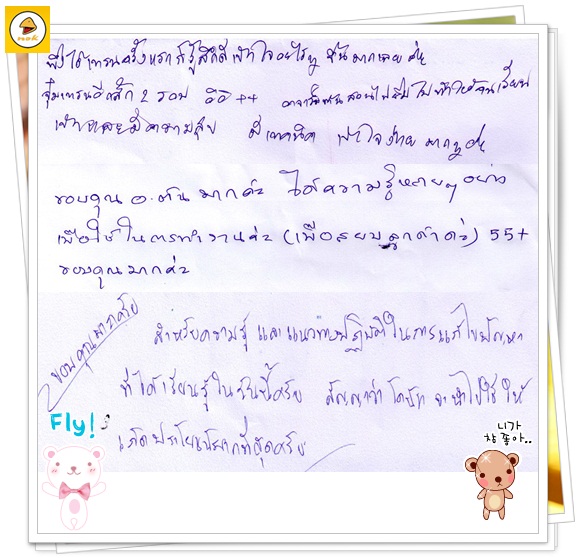 nok
พึ่งได้เทรนครั้งแรก ก็รู้สึกดี เข้าใจอะไรๆ ขึ้นมากเลยค่ะ
จุ๋มเทรนอีกสัก 2 รอบ อิอิ++ อาจารย์ สอนไป ยิ้มไป ทำให้ผู้เรียน
มีความสุข มีเทคนิค เข้าใจง่าย มากๆค่ะ
ขอบคุณ อ.ตั้น มากค่ะ ได้ความรู้หลายๆ อย่าง
เพื่อใช้ในการทำงานค่ะ (เพื่อสยบลูกค้าค่ะ) 55+
ขอบคุณมากค่ะ
ขอบคุณมากครับ
สำหรับความรู้ และแนวทางปฏิบัติในการแก้ไขปัญหา
ที่ได้เรียนรู้ในวันนี้ครับ สัญญาว่า จะนำไปใช้ ให้
เกิดประโยชน์มากที่สุดครับ
Fly!
니가
참 좋아..